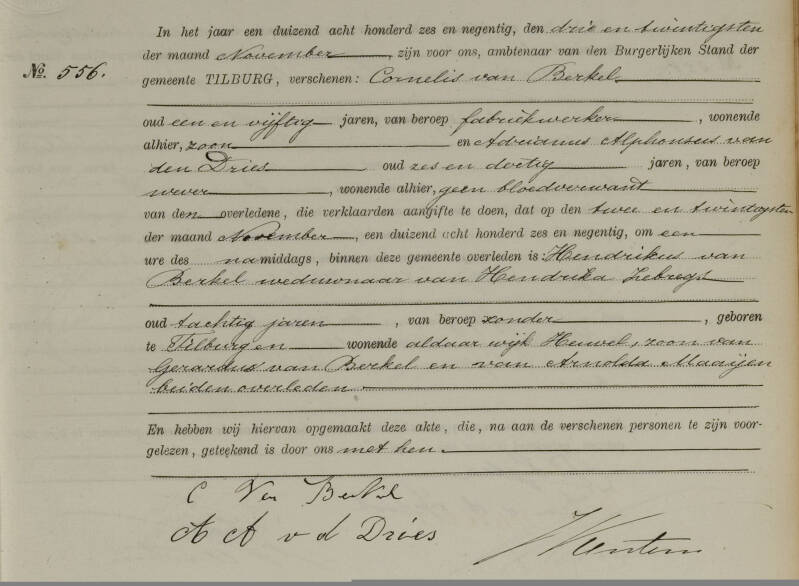 In het jaar een duizend acht honderd zes en negentig, den drie en twintigsten
der maand November, zijn voor ons, ambtenaar van den Burgerlijken Stand der
No. 556. gemeente TILBURG, verschenen: Cornelis van Berkel
oud een en vijftig jaren, van beroep fabriekwerker, wonende
alhier, zoon en Adrianus Alphonsus van
den Dries oud zes en dertig jaren, van beroep
wever, wonende alhier, geen bloedverwant
van den overledene, die verklaarden aangifte te doen, dat op den twee en twintigsten
der maand November, een duizend acht honderd zes en negentig, om een
ure des namiddags, binnen deze gemeente overleden is: Hendrikus van
Berkel weduwnaar van Hendrika Lebregs
oud tachtig jaren, van beroep zonder, geboren
te Tilburg en wonende aldaar wijk Heuvel, zoon van
Gerardus van Berkel en van Arnolda Maaijen
beiden overleden
En hebben wij hiervan opgemaakt deze akte, die, na aan de verschenen personen te zijn voor-
gelezen, geteekend is door ons met hen.
C Van Berkel
A A v d Dries